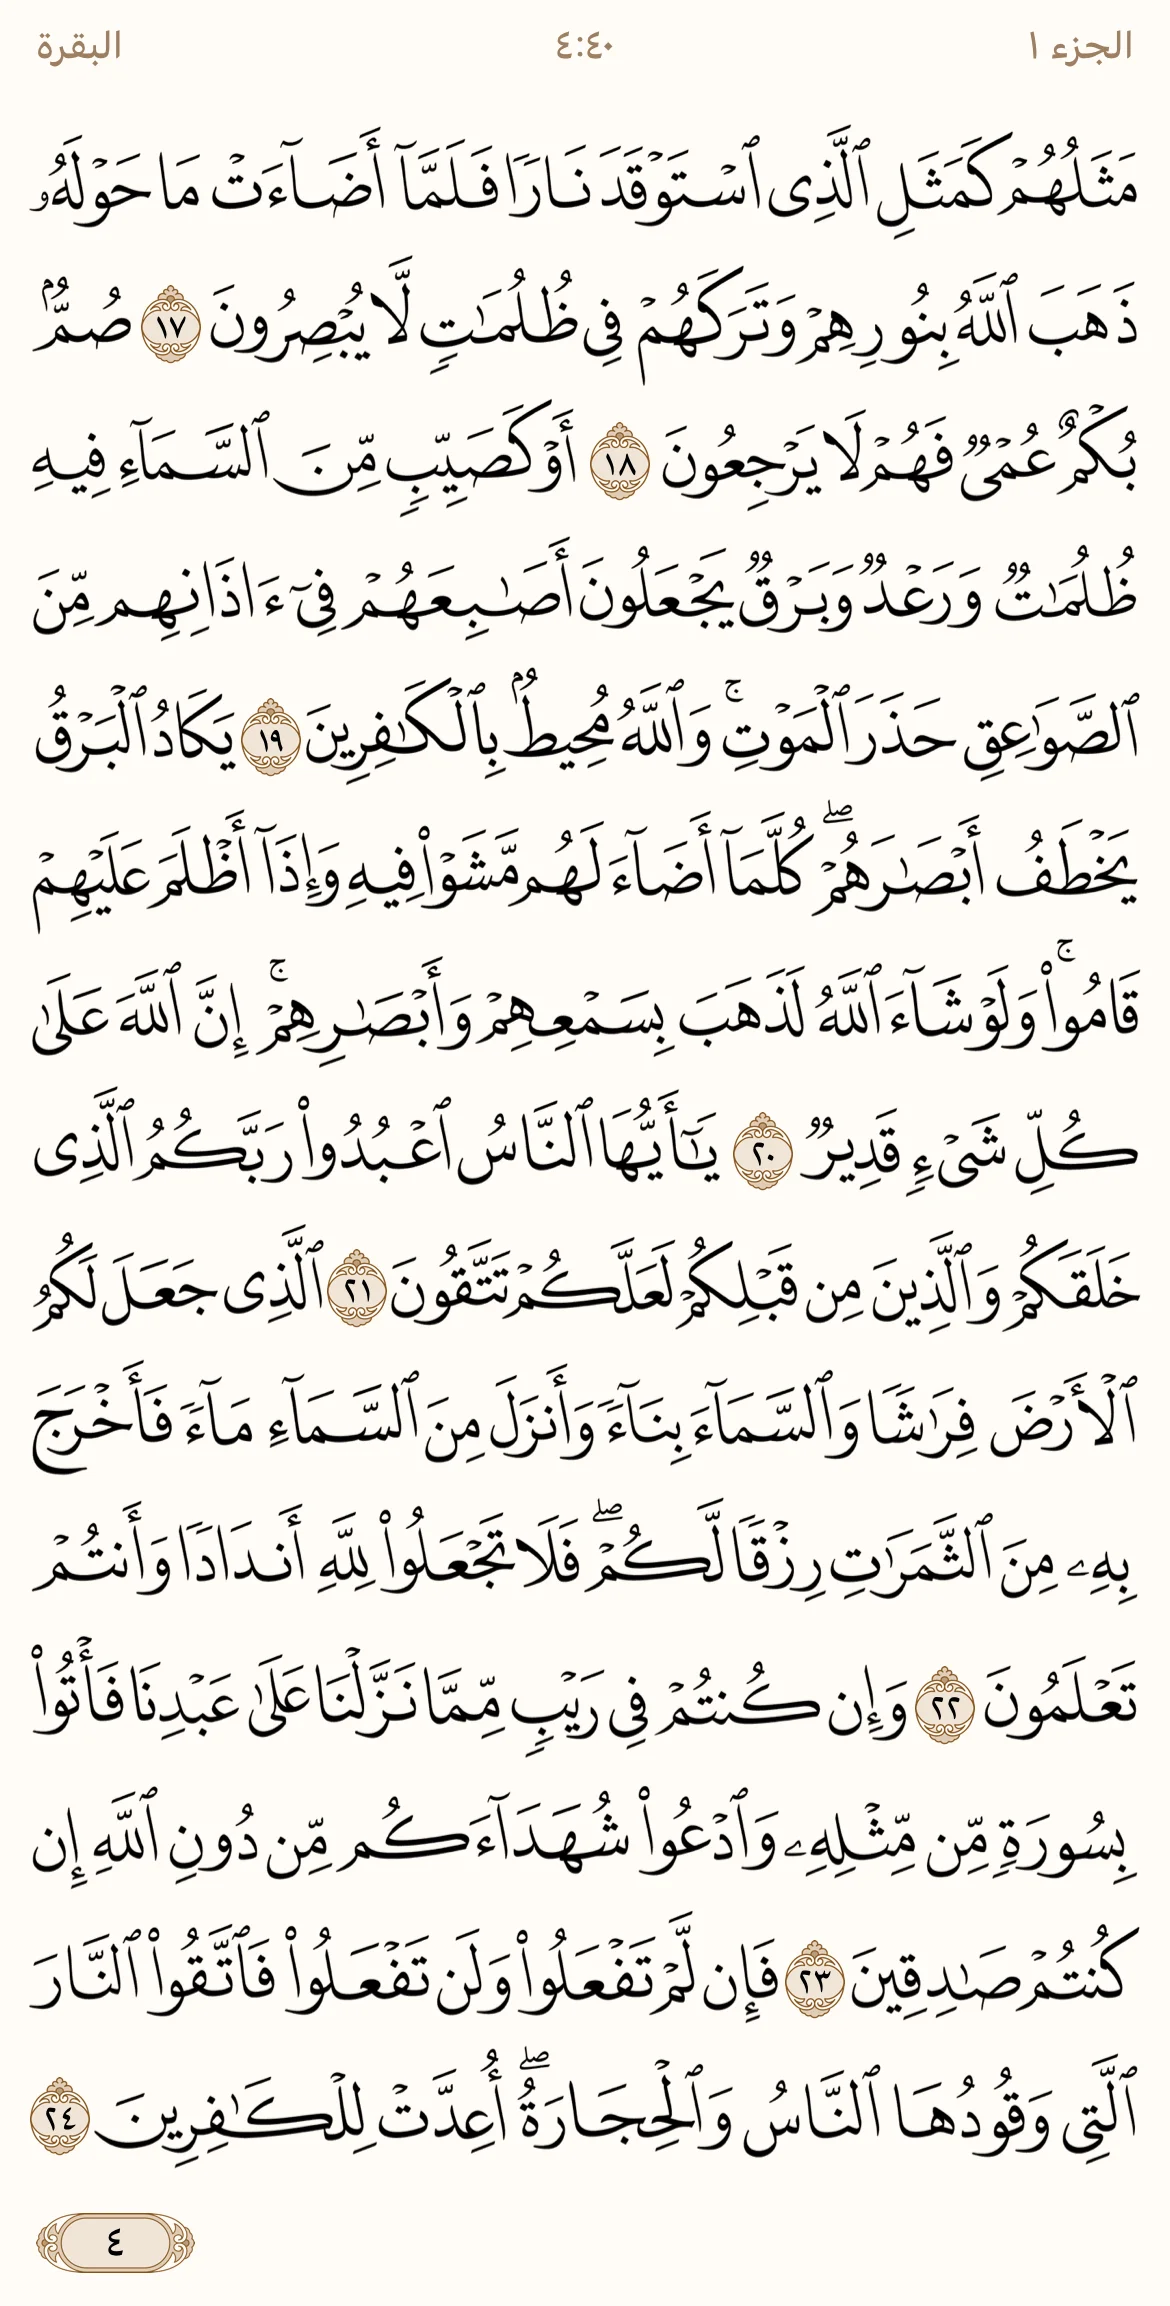 الجزء ١ ٤:٤٠ البقرة
مَثَلُهُمۡ كَمَثَلِ ٱلَّذِى ٱسۡتَوۡقَدَ نَارٗا فَلَمَّآ أَضَآءَتۡ مَا حَوۡلَهُۥ
ذَهَبَ ٱللَّهُ بِنُورِهِمۡ وَتَرَكَهُمۡ فِى ظُلُمَٰتٖ لَّا يُبۡصِرُونَ ١٧ صُمُّۢ
بُكۡمٌ عُمۡىٞ فَهُمۡ لَا يَرۡجِعُونَ ١٨ أَوۡ كَصَيِّبٖ مِّنَ ٱلسَّمَآءِ فِيهِ
ظُلُمَٰتٞ وَرَعۡدٞ وَبَرۡقٞ يَجۡعَلُونَ أَصَٰبِعَهُمۡ فِىٓ ءَاذَانِهِم مِّنَ
ٱلصَّوَٰعِقِ حَذَرَ ٱلۡمَوۡتِۚ وَٱللَّهُ مُحِيطُۢ بِٱلۡكَٰفِرِينَ ١٩ يَكَادُ ٱلۡبَرۡقُ
يَخۡطَفُ أَبۡصَٰرَهُمۡۖ كُلَّمَآ أَضَآءَ لَهُم مَّشَوۡاْ فِيهِ وَإِذَآ أَظۡلَمَ عَلَيۡهِمۡ
قَامُواْۚ وَلَوۡ شَآءَ ٱللَّهُ لَذَهَبَ بِسَمۡعِهِمۡ وَأَبۡصَٰرِهِمۡۚ إِنَّ ٱللَّهَ عَلَىٰ
كُلِّ شَىۡءٖ قَدِيرٞ ٢٠ يَٰٓأَيُّهَا ٱلنَّاسُ ٱعۡبُدُواْ رَبَّكُمُ ٱلَّذِى
خَلَقَكُمۡ وَٱلَّذِينَ مِن قَبۡلِكُمۡ لَعَلَّكُمۡ تَتَّقُونَ ٢١ ٱلَّذِى جَعَلَ لَكُمُ
ٱلۡأَرۡضَ فِرَٰشٗا وَٱلسَّمَآءَ بِنَآءٗ وَأَنزَلَ مِنَ ٱلسَّمَآءِ مَآءٗ فَأَخۡرَجَ
بِهِۦ مِنَ ٱلثَّمَرَٰتِ رِزۡقٗا لَّكُمۡۖ فَلَا تَجۡعَلُواْ لِلَّهِ أَندَادٗا وَأَنتُمۡ
تَعۡلَمُونَ ٢٢ وَإِن كُنتُمۡ فِى رَيۡبٖ مِّمَّا نَزَّلۡنَا عَلَىٰ عَبۡدِنَا فَأۡتُواْ
بِسُورَةٖ مِّن مِّثۡلِهِۦ وَٱدۡعُواْ شُهَدَآءَكُم مِّن دُونِ ٱللَّهِ إِن
كُنتُمۡ صَٰدِقِينَ ٢٣ فَإِن لَّمۡ تَفۡعَلُواْ وَلَن تَفۡعَلُواْ فَٱتَّقُواْ ٱلنَّارَ
ٱلَّتِى وَقُودُهَا ٱلنَّاسُ وَٱلۡحِجَارَةُۖ أُعِدَّتۡ لِلۡكَٰفِرِينَ ٢٤
٤